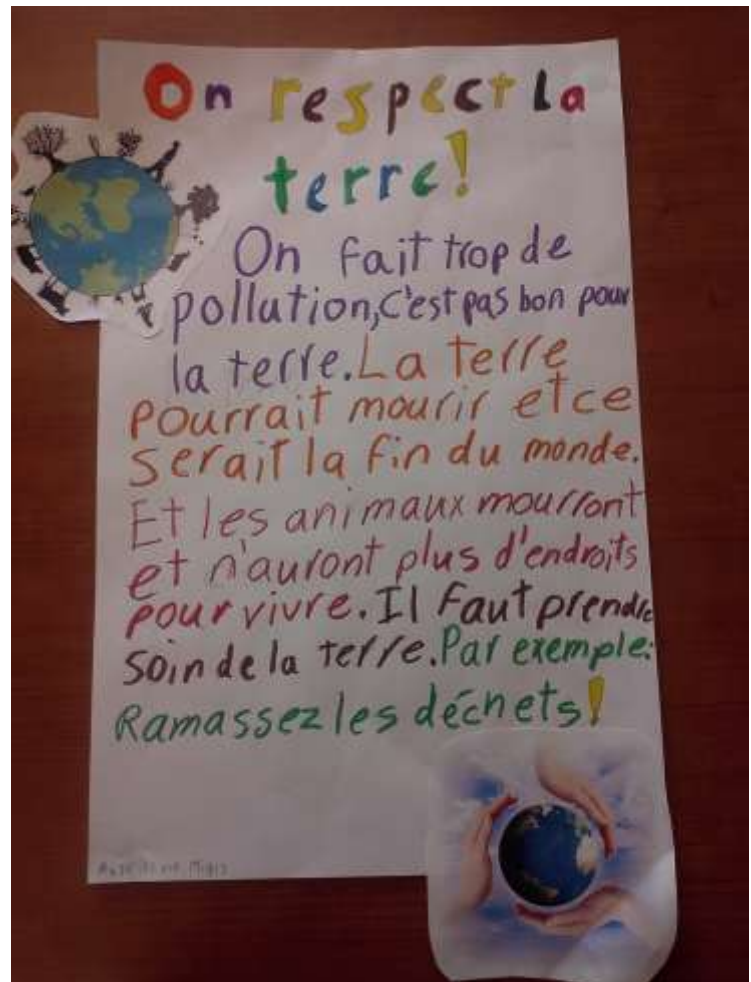 On respect la
terre!
On fait trop de
pollution, c'est pas bon pour
la terre. La terre
pourrait mourir et ce
serait la fin du monde.
Et les animaux mourront
et n'auront plus d'endroits
pour vivre. Il faut prendre
soin de la terre. Par exemple:
Ramassez les déchets!